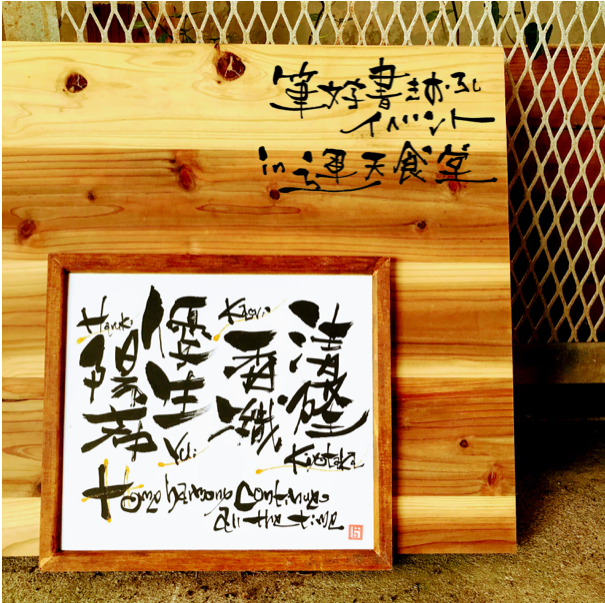 筆好書きおろし
イベント
in 運天食堂
清隆
Kiyotaka
香織
Kaori
優生
Yuki
Haruki
陽
Home harmony Continue
all the time